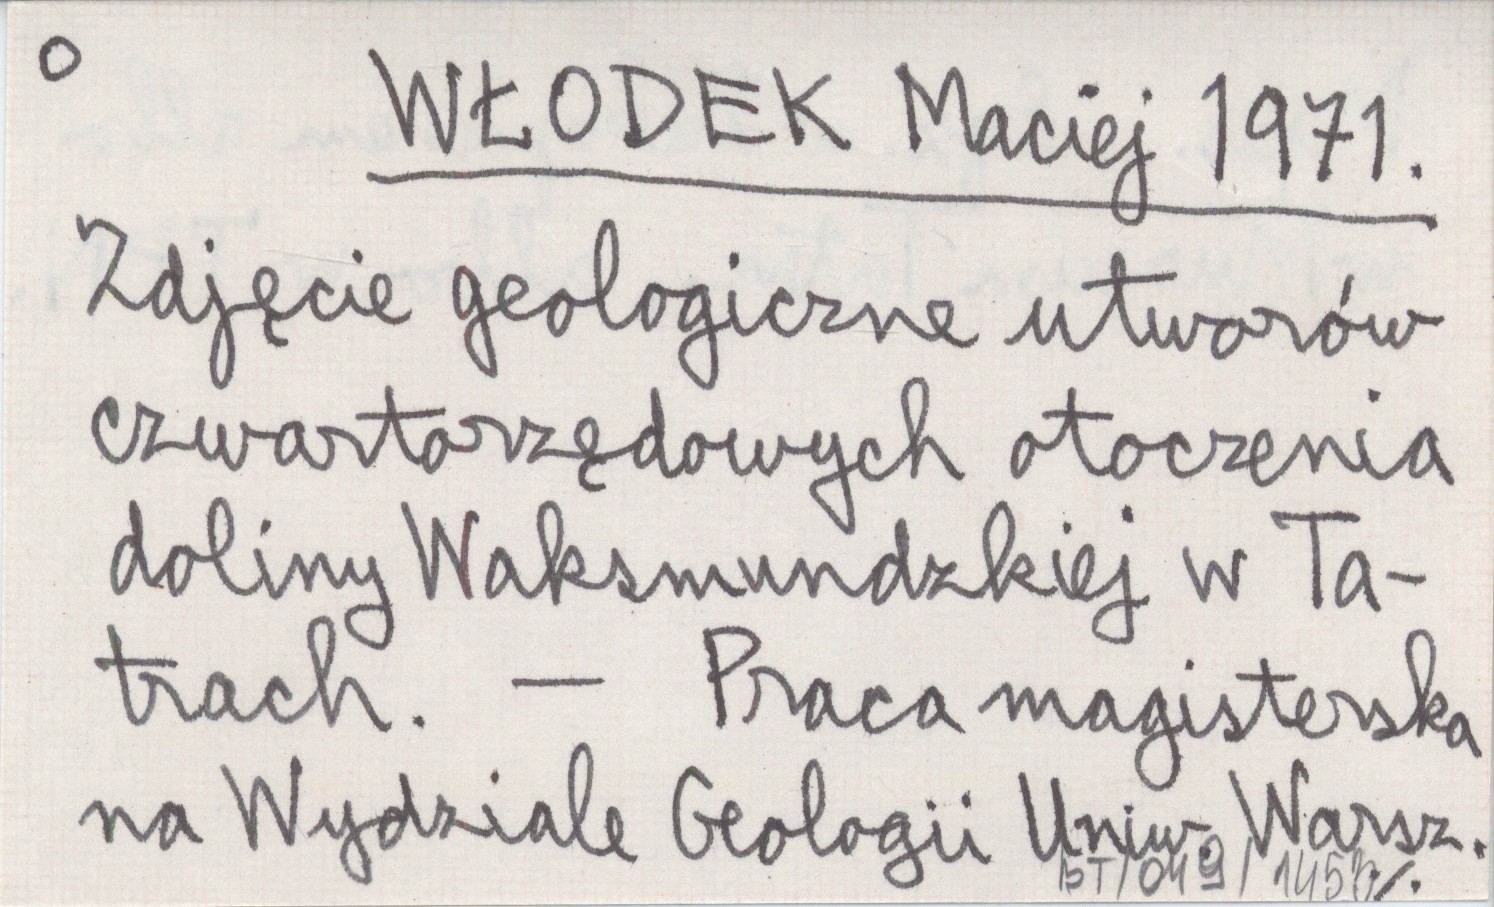 o
WŁODEK Maciej 1971.
Zdjęcie geologiczne utworów
czwartorzędowych otoczenia
doliny Waksmundzkiej w Ta-
trach. — Praca magisterska
na Wydziale Geologii Uniw. Warsz.
./.